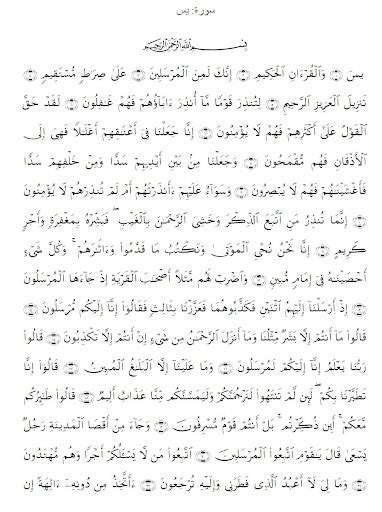 سورة: يس
بِسْمِ اللَّهِ الرَّحْمَٰنِ الرَّحِيمِ
يسٓ ۝ وَالْقُرْءَانِ الْحَكِيمِ ۝ إِنَّكَ لَمِنَ الْمُرْسَلِينَ ۝ عَلَىٰ صِرَٰطٍ مُّسْتَقِيمٍ ۝
تَنزِيلَ الْعَزِيزِ الرَّحِيمِ ۝ لِتُنذِرَ قَوْمًا مَّآ أُنذِرَ ءَابَآؤُهُمْ فَهُمْ غَٰفِلُونَ ۝ لَقَدْ حَقَّ
الْقَوْلُ عَلَىٰٓ أَكْثَرِهِمْ فَهُمْ لَا يُؤْمِنُونَ ۝ إِنَّا جَعَلْنَا فِىٓ أَعْنَٰقِهِمْ أَغْلَٰلًا فَهِىَ إِلَى
الْأَذْقَانِ فَهُم مُّقْمَحُونَ ۝ وَجَعَلْنَا مِنۢ بَيْنِ أَيْدِيهِمْ سَدًّا وَمِنْ خَلْفِهِمْ سَدًّا
فَأَغْشَيْنَٰهُمْ فَهُمْ لَا يُبْصِرُونَ ۝ وَسَوَآءٌ عَلَيْهِمْ ءَأَنذَرْتَهُمْ أَمْ لَمْ تُنذِرْهُمْ لَا يُؤْمِنُونَ
۝ إِنَّمَا تُنذِرُ مَنِ اتَّبَعَ الذِّكْرَ وَخَشِىَ الرَّحْمَٰنَ بِالْغَيْبِ ۖ فَبَشِّرْهُ بِمَغْفِرَةٍ وَأَجْرٍ
كَرِيمٍ ۝ إِنَّا نَحْنُ نُحْىِ الْمَوْتَىٰ وَنَكْتُبُ مَا قَدَّمُوا۟ وَءَاثَٰرَهُمْ ۚ وَكُلَّ شَىْءٍ
أَحْصَيْنَٰهُ فِىٓ إِمَامٍ مُّبِينٍ ۝ وَاضْرِبْ لَهُم مَّثَلًا أَصْحَٰبَ الْقَرْيَةِ إِذْ جَآءَهَا الْمُرْسَلُونَ
۝ إِذْ أَرْسَلْنَآ إِلَيْهِمُ اثْنَيْنِ فَكَذَّبُوهُمَا فَعَزَّزْنَا بِثَالِثٍ فَقَالُوٓا۟ إِنَّآ إِلَيْكُم مُّرْسَلُونَ ۝
قَالُوا۟ مَآ أَنتُمْ إِلَّا بَشَرٌ مِّثْلُنَا وَمَآ أَنزَلَ الرَّحْمَٰنُ مِن شَىْءٍ إِنْ أَنتُمْ إِلَّا تَكْذِبُونَ ۝ قَالُوا۟
رَبُّنَا يَعْلَمُ إِنَّآ إِلَيْكُمْ لَمُرْسَلُونَ ۝ وَمَا عَلَيْنَآ إِلَّا الْبَلَٰغُ الْمُبِينُ ۝ قَالُوٓا۟ إِنَّا
تَطَيَّرْنَا بِكُمْ ۖ لَئِن لَّمْ تَنتَهُوا۟ لَنَرْجُمَنَّكُمْ وَلَيَمَسَّنَّكُم مِّنَّا عَذَابٌ أَلِيمٌ ۝ قَالُوا۟ طَٰٓئِرُكُم
مَّعَكُمْ ۚ أَئِن ذُكِّرْتُم ۚ بَلْ أَنتُمْ قَوْمٌ مُّسْرِفُونَ ۝ وَجَآءَ مِنْ أَقْصَا الْمَدِينَةِ رَجُلٌ
يَسْعَىٰ قَالَ يَٰقَوْمِ اتَّبِعُوا۟ الْمُرْسَلِينَ ۝ اتَّبِعُوا۟ مَن لَّا يَسْـَٔلُكُمْ أَجْرًا وَهُم مُّهْتَدُونَ
۝ وَمَا لِىَ لَآ أَعْبُدُ الَّذِى فَطَرَنِى وَإِلَيْهِ تُرْجَعُونَ ۝ ءَأَتَّخِذُ مِن دُونِهِۦٓ ءَالِهَةً إِن